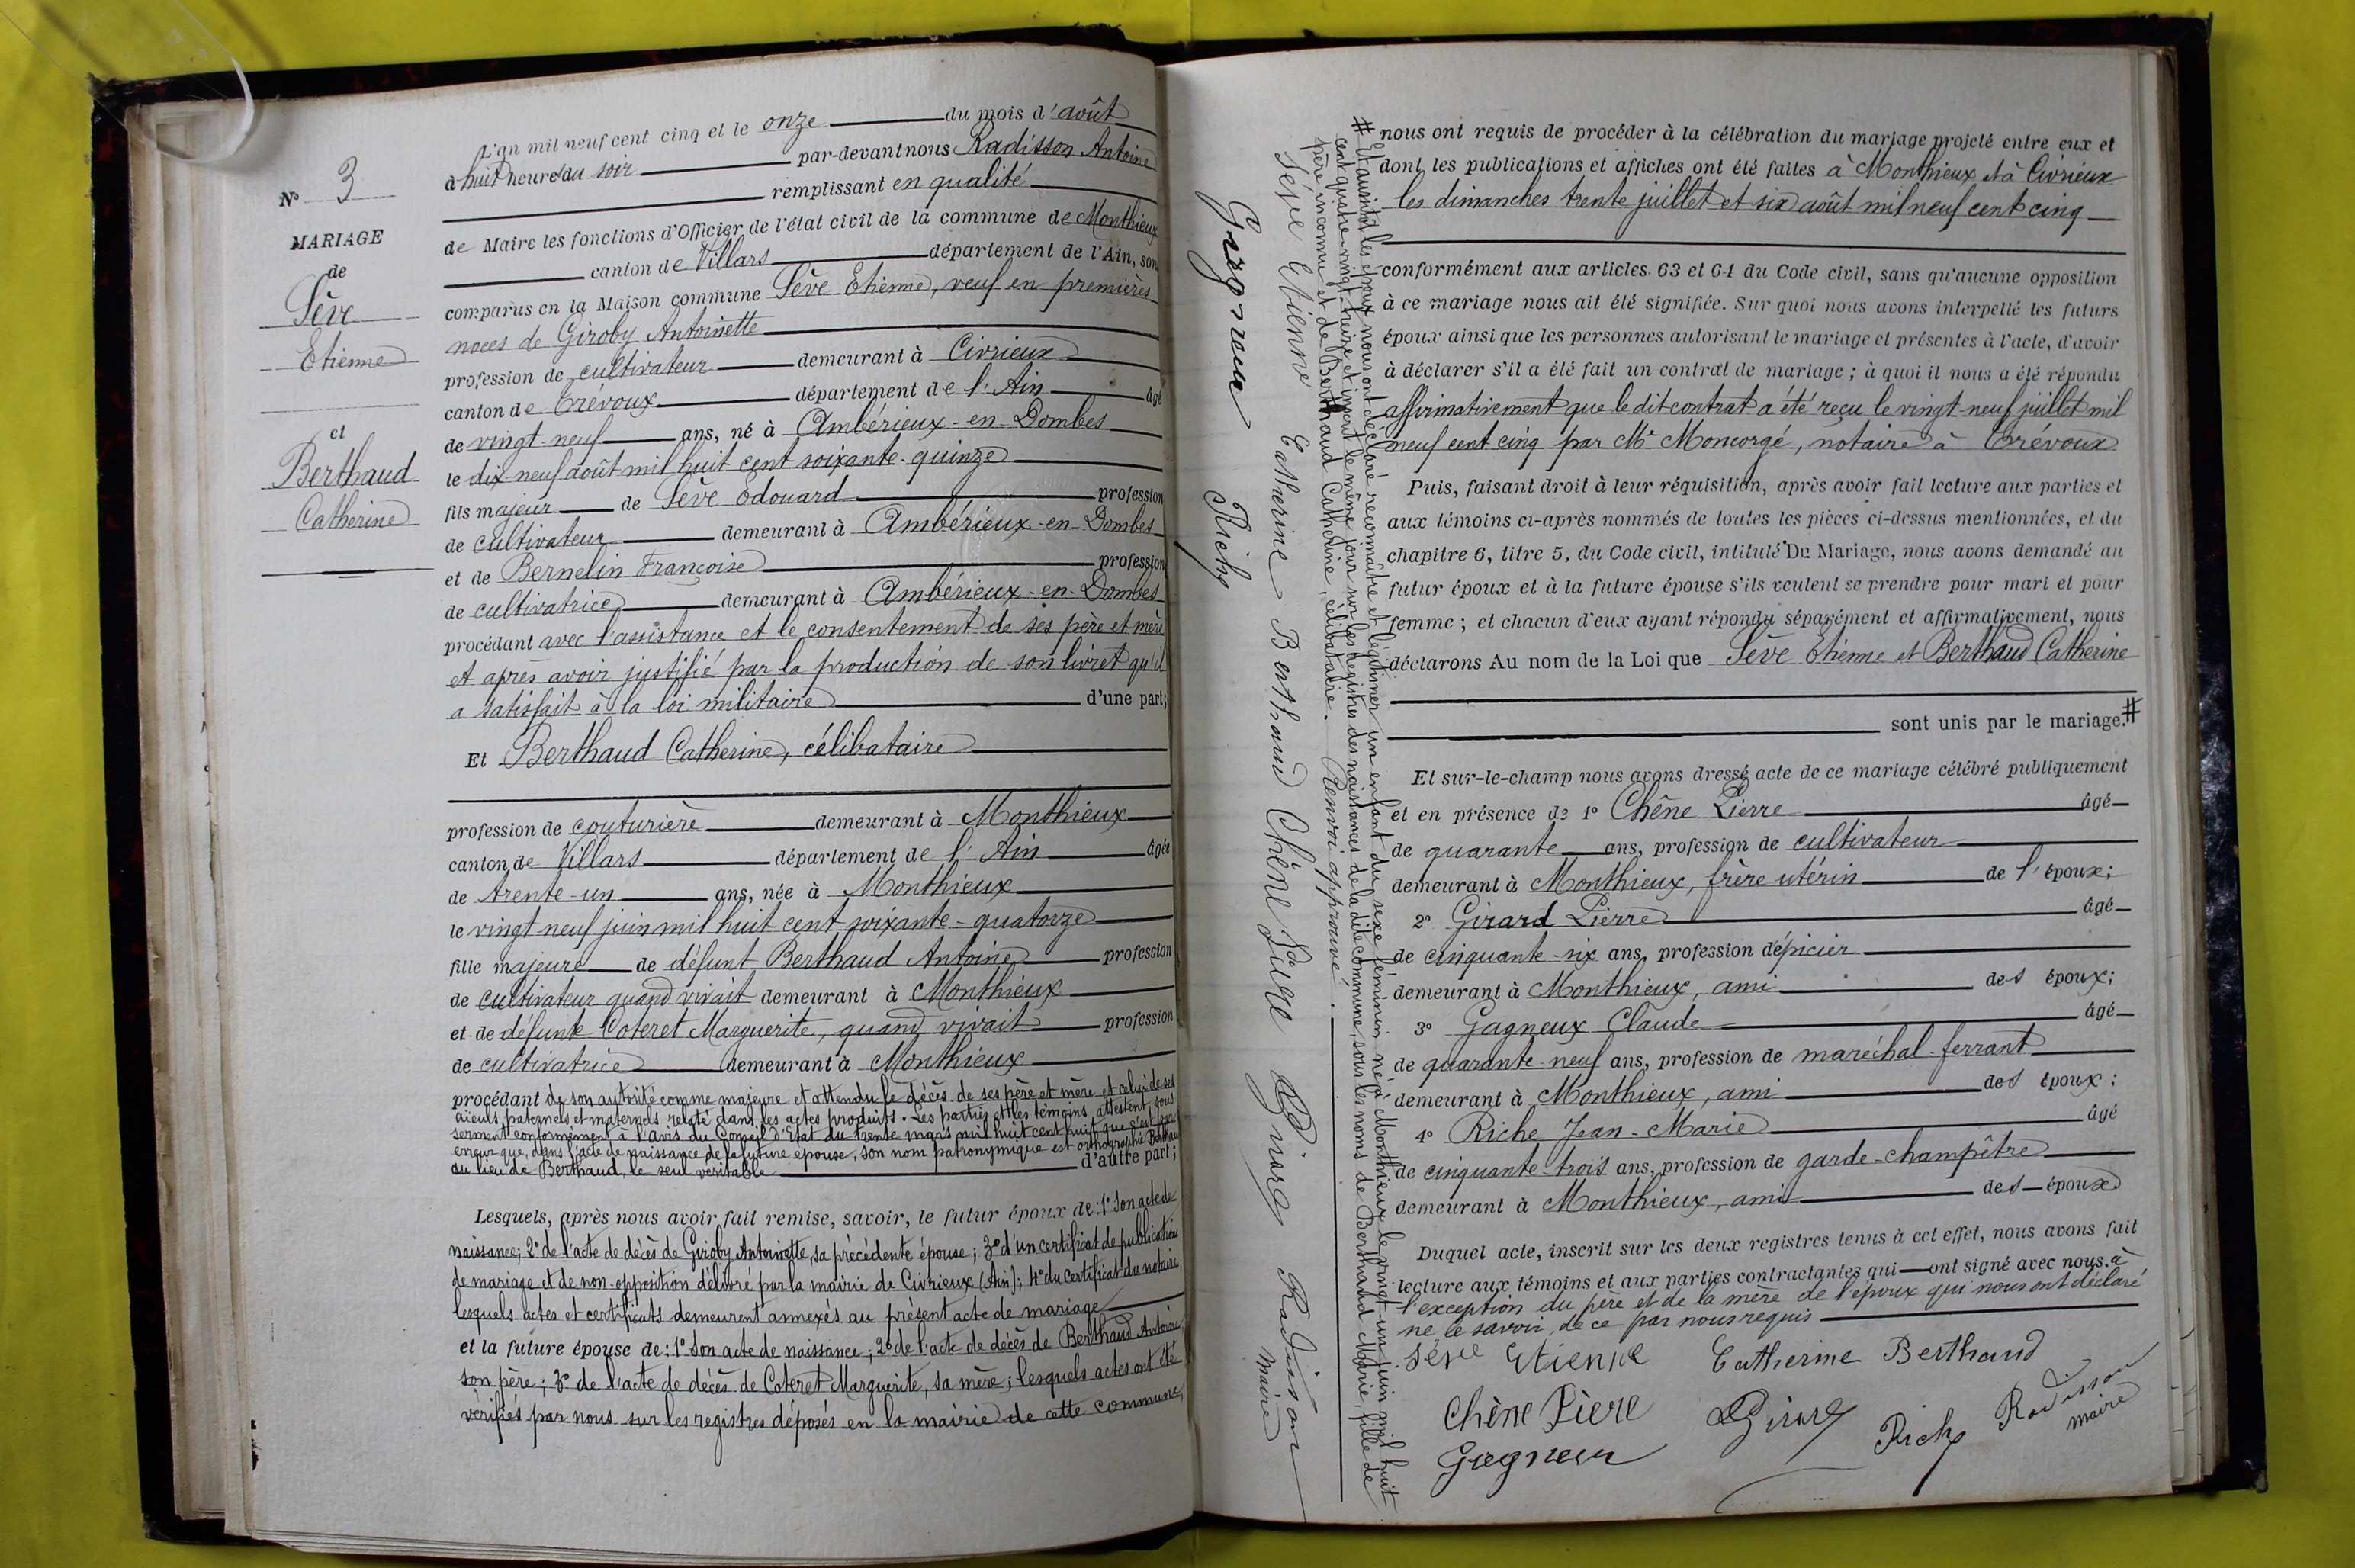 N° 3
MARIAGE
de
Sève
Etienne
et
Berthaud
Catherine
L'an mil neuf cent cinq et le onze du mois d'août
à huit heures du soir par-devant nous Radisson Antoine
remplissant en qualité
de Maire les fonctions d'Officier de l'état civil de la commune de Monthieux
canton de Villars département de l'Ain, son
comparus en la Maison commune Sève Etienne, veuf en premières
noces de Giroby Antoinette
profession de cultivateur demeurant à Civrieux
canton de Trévoux département de l'Ain âgé
de vingt-neuf ans, né à Ambérieux-en-Dombes
le dix-neuf août mil huit cent soixante-quinze
fils majeur de Sève Edouard profession
de cultivateur demeurant à Ambérieux-en-Dombes
et de Bernelin Françoise profession
de cultivatrice demeurant à Ambérieux-en-Dombes
procédant avec l'assistance et le consentement de ses père et mère
et après avoir justifié par la production de son livret qu'il
a satisfait à la loi militaire d'une part;
Et Berthaud Catherine, célibataire
profession de couturière demeurant à Monthieux
canton de Villars département de l'Ain âgée
de trente-un ans, née à Monthieux
le vingt neuf juin mil huit cent soixante-quatorze
fille majeure de défunt Berthaud Antoine profession
de cultivateur quand vivait demeurant à Monthieux
et de défunte Coteret Marguerite, quand vivait profession
de cultivatrice demeurant à Monthieux
procédant de son autorité comme majeure et attendu le décès de ses père et mère et celui de ses
aïeuls paternels et maternels relaté dans les actes produits. Les parties et les témoins attestent sous
serment conformément à l'avis du Conseil d'Etat du trente mars mil huit cent huit que c'est par
erreur que, dans l'acte de naissance de la future épouse, son nom patronymique est orthographié
au lieu de Berthaud, le seul véritable d'autre part;
Lesquels, après nous avoir fait remise, savoir, le futur époux de: 1° son acte de
naissance; 2° de l'acte de décès de Giroby Antoinette, sa précédente épouse; 3° d'un certificat de publications
de mariage et de non-opposition délivré par la mairie de Civrieux (Ain); 4° du certificat du notaire,
lesquels actes et certificats demeurent annexés au présent acte de mariage
et la future épouse de: 1° son acte de naissance; 2° de l'acte de décès de Berthaud Antoine
son père; 3° de l'acte de décès de Coteret Marguerite, sa mère; lesquels actes ont été
vérifiés par nous sur les registres déposés en la mairie de cette commune,
# Et aussitôt les époux nous ont déclaré reconnaître et légitimer un enfant du sexe féminin né à Monthieux le vingt-un juin mil huit
cent quatre-vingt- et inscrit le même jour sur les registres des naissances de la dite commune, sous les noms de Berthaud Marie, fille de
père inconnu et de Berthaud Catherine, célibataire. Renvoi approuvé.
Sève Etienne Catherine Berthaud Chêne Pière Girard Radisson
maire
Gagneux Riche
nous ont requis de procéder à la célébration du mariage projeté entre eux et
dont les publications et affiches ont été faites à Monthieux et à Civrieux
les dimanches trente juillet et six août mil neuf cent cinq
conformément aux articles 63 et 64 du Code civil, sans qu'aucune opposition
à ce mariage nous ait été signifiée. Sur quoi nous avons interpellé les futurs
époux ainsi que les personnes autorisant le mariage et présentes à l'acte, d'avoir
à déclarer s'il a été fait un contrat de mariage; à quoi il nous a été répondu
affirmativement que le dit contrat a été reçu le vingt-neuf juillet mil
neuf cent cinq par Me Moncorgé, notaire à Trévoux
Puis, faisant droit à leur réquisition, après avoir fait lecture aux parties et
aux témoins ci-après nommés de toutes les pièces ci-dessus mentionnées, et du
chapitre 6, titre 5, du Code civil, intitulé Du Mariage, nous avons demandé au
futur époux et à la future épouse s'ils veulent se prendre pour mari et pour
femme; et chacun d'eux ayant répondu séparément et affirmativement, nous
déclarons Au nom de la Loi que Sève Etienne et Berthaud Catherine
sont unis par le mariage. #
Et sur-le-champ nous avons dressé acte de ce mariage célébré publiquement
et en présence de 1° Chêne Pierre âgé
de quarante ans, profession de cultivateur
demeurant à Monthieux, frère utérin de l'époux;
2° Girard Pierre âgé
de cinquante-six ans, profession d'épicier
demeurant à Monthieux, ami des époux;
3° Gagneux Claude âgé
de quarante-neuf ans, profession de maréchal-ferrant
demeurant à Monthieux, ami des époux;
4° Riche Jean-Marie âgé
de cinquante-trois ans, profession de garde-champêtre
demeurant à Monthieux, ami des époux
Duquel acte, inscrit sur les deux registres tenus à cet effet, nous avons fait
lecture aux témoins et aux parties contractantes qui ont signé avec nous. à
l'exception du père et de la mère de l'époux qui nous ont déclaré
ne le savoir, de ce par nous requis
Sève Etienne Catherine Berthaud
Chêne Pière Girard Riche Radisson
maire
Gagneux